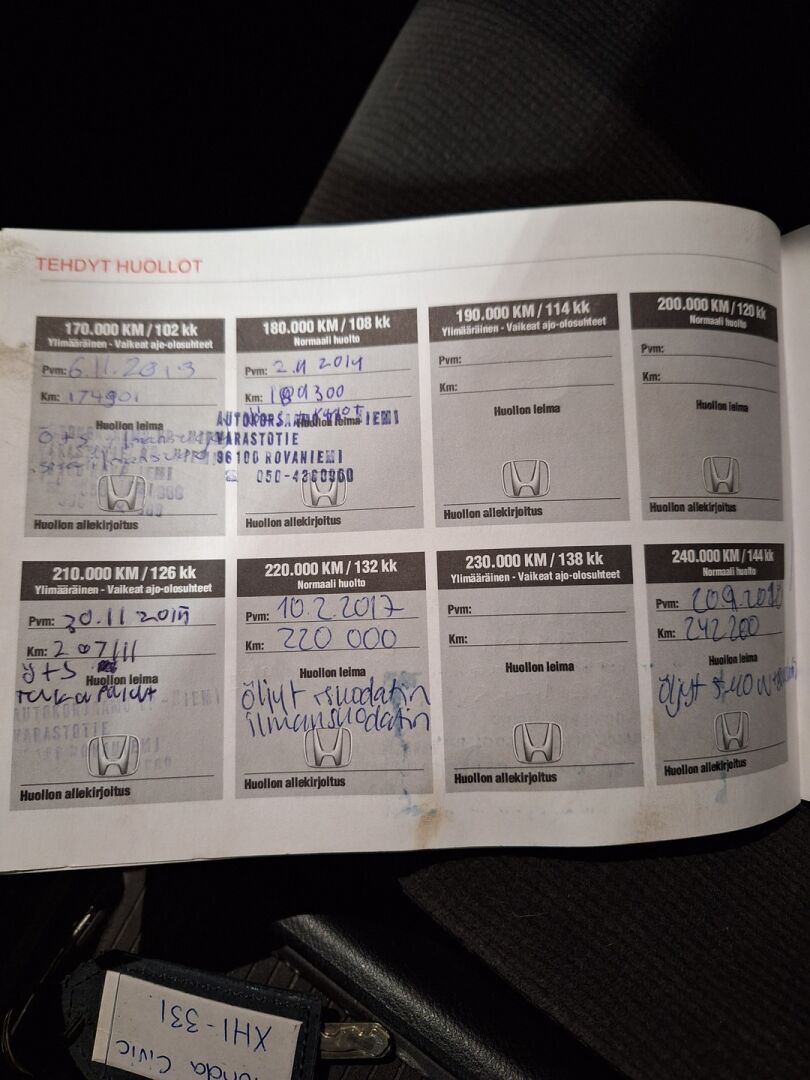 TEHDYT HUOLLOT
170.000 KM / 102 kk
Ylimääräinen - Vaikeat ajo-olosuhteet
Pvm: 6.11.2013
Km: 174901
Huollon leima
Ö+S
Huollon allekirjoitus
180.000 KM / 108 kk
Normaali huolto
Pvm: 2.11 2014
Km: 300
Huollon leima
VARASTOTIE
96100 ROVANIEMI
☎ 050-4360960
Huollon allekirjoitus
190.000 KM / 114 kk
Ylimääräinen - Vaikeat ajo-olosuhteet
Pvm:
Km:
Huollon leima
Huollon allekirjoitus
200.000 KM / 120 kk
Normaali huolto
Pvm:
Km:
Huollon leima
Huollon allekirjoitus
210.000 KM / 126 kk
Ylimääräinen - Vaikeat ajo-olosuhteet
Pvm: 30.11
Km: 207111
Ö+S
Huollon leima
VARASTOTIE
Huollon allekirjoitus
220.000 KM / 132 kk
Normaali huolto
Pvm: 10.2.2017
Km: 220 000
Huollon leima
öljyt suodatin
ilmansuodatin
Huollon allekirjoitus
230.000 KM / 138 kk
Ylimääräinen - Vaikeat ajo-olosuhteet
Pvm:
Km:
Huollon leima
Huollon allekirjoitus
240.000 KM / 144 kk
Normaali huolto
Pvm: 20.9.2018
Km: 242200
Huollon leima
öljyt
Huollon allekirjoitus
XHI-331
onda Civic